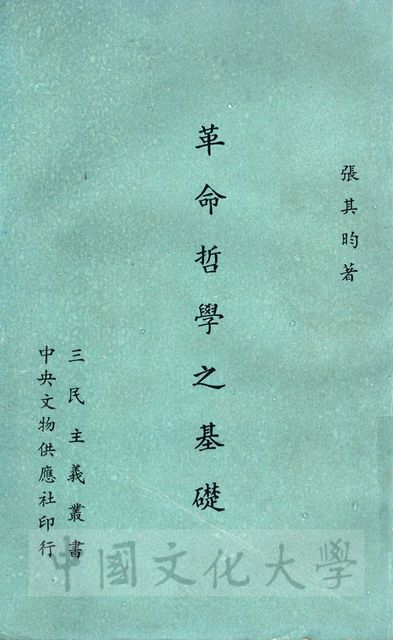 張其昀著
革命哲學之基礎
三民主義叢書
中央文物供應社印行
中國文化大學